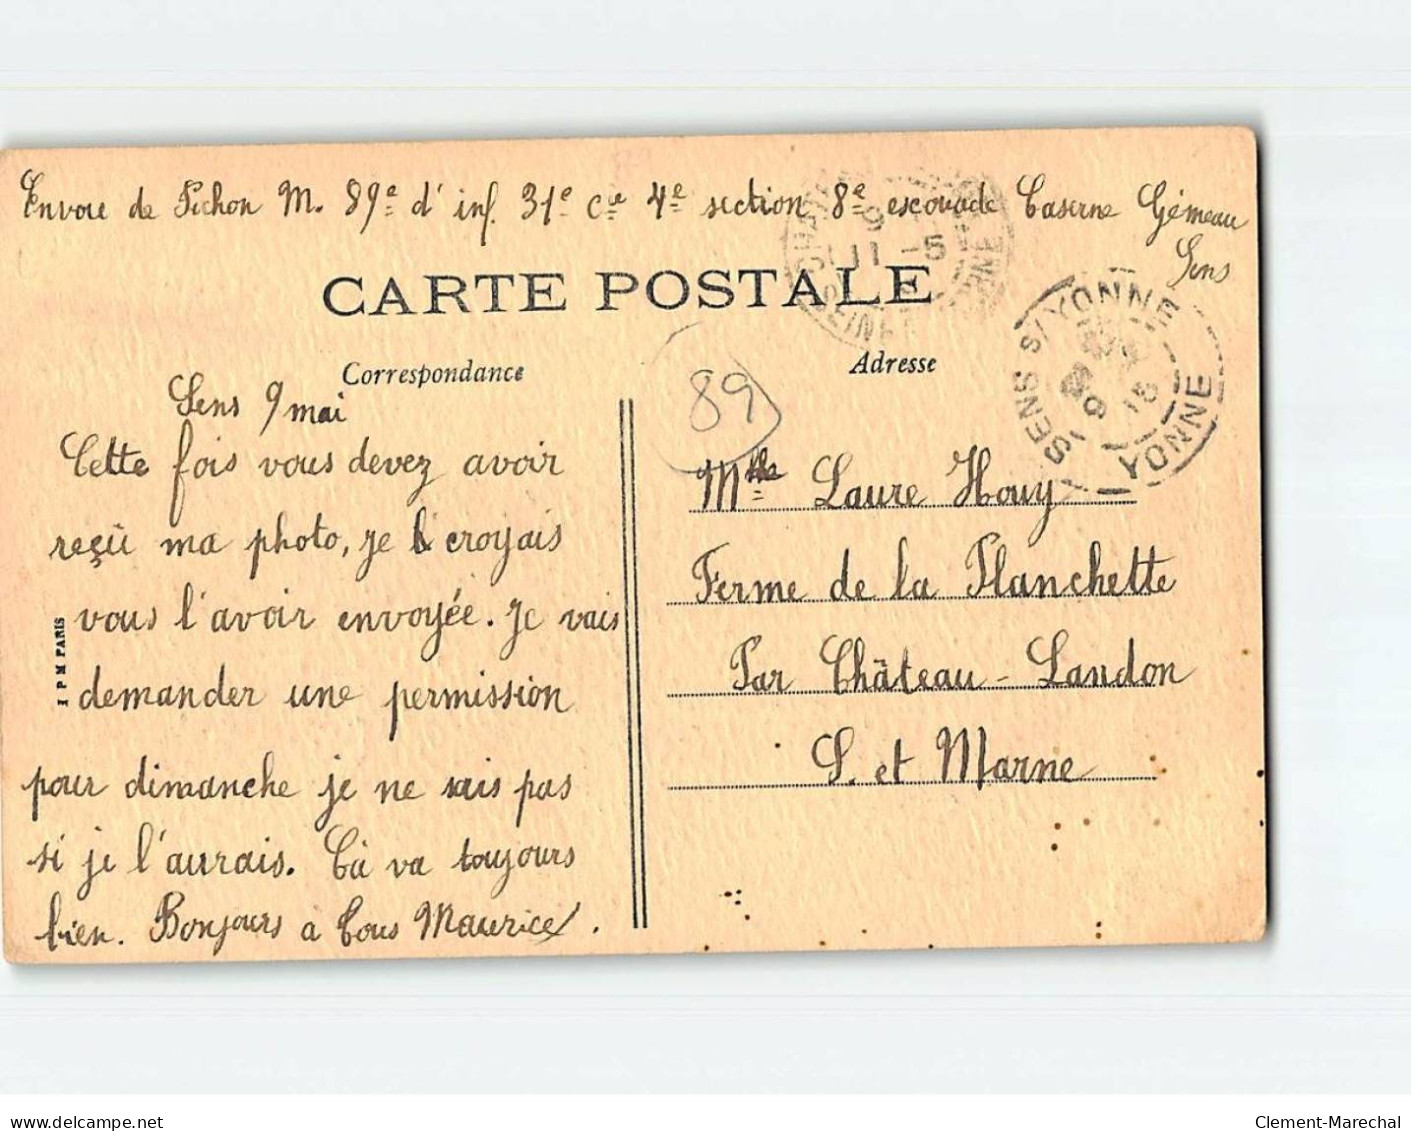 Envoie de Pichon M. 89e d'inf. 31e Cie 4e section 8e escouade Caserne Gémeau
Sens
CARTE POSTALE
Correspondance
Adresse
89
SENS S/ YONNE
9
15
YONNE
11 -5
Sens 9 mai
Cette fois vous devez avoir
reçû ma photo, je croyais
vous l'avoir envoyée. Je vais
demander une permission
pour dimanche je ne sais pas
si je l'aurais. Cà va toujours
bien. Bonjours à tous Maurice.
I P M PARIS
Mlle Laure Houy
Ferme de la Planchette
Par Château-Landon
S. et Marne
delcampe.net
Clement-Marechal